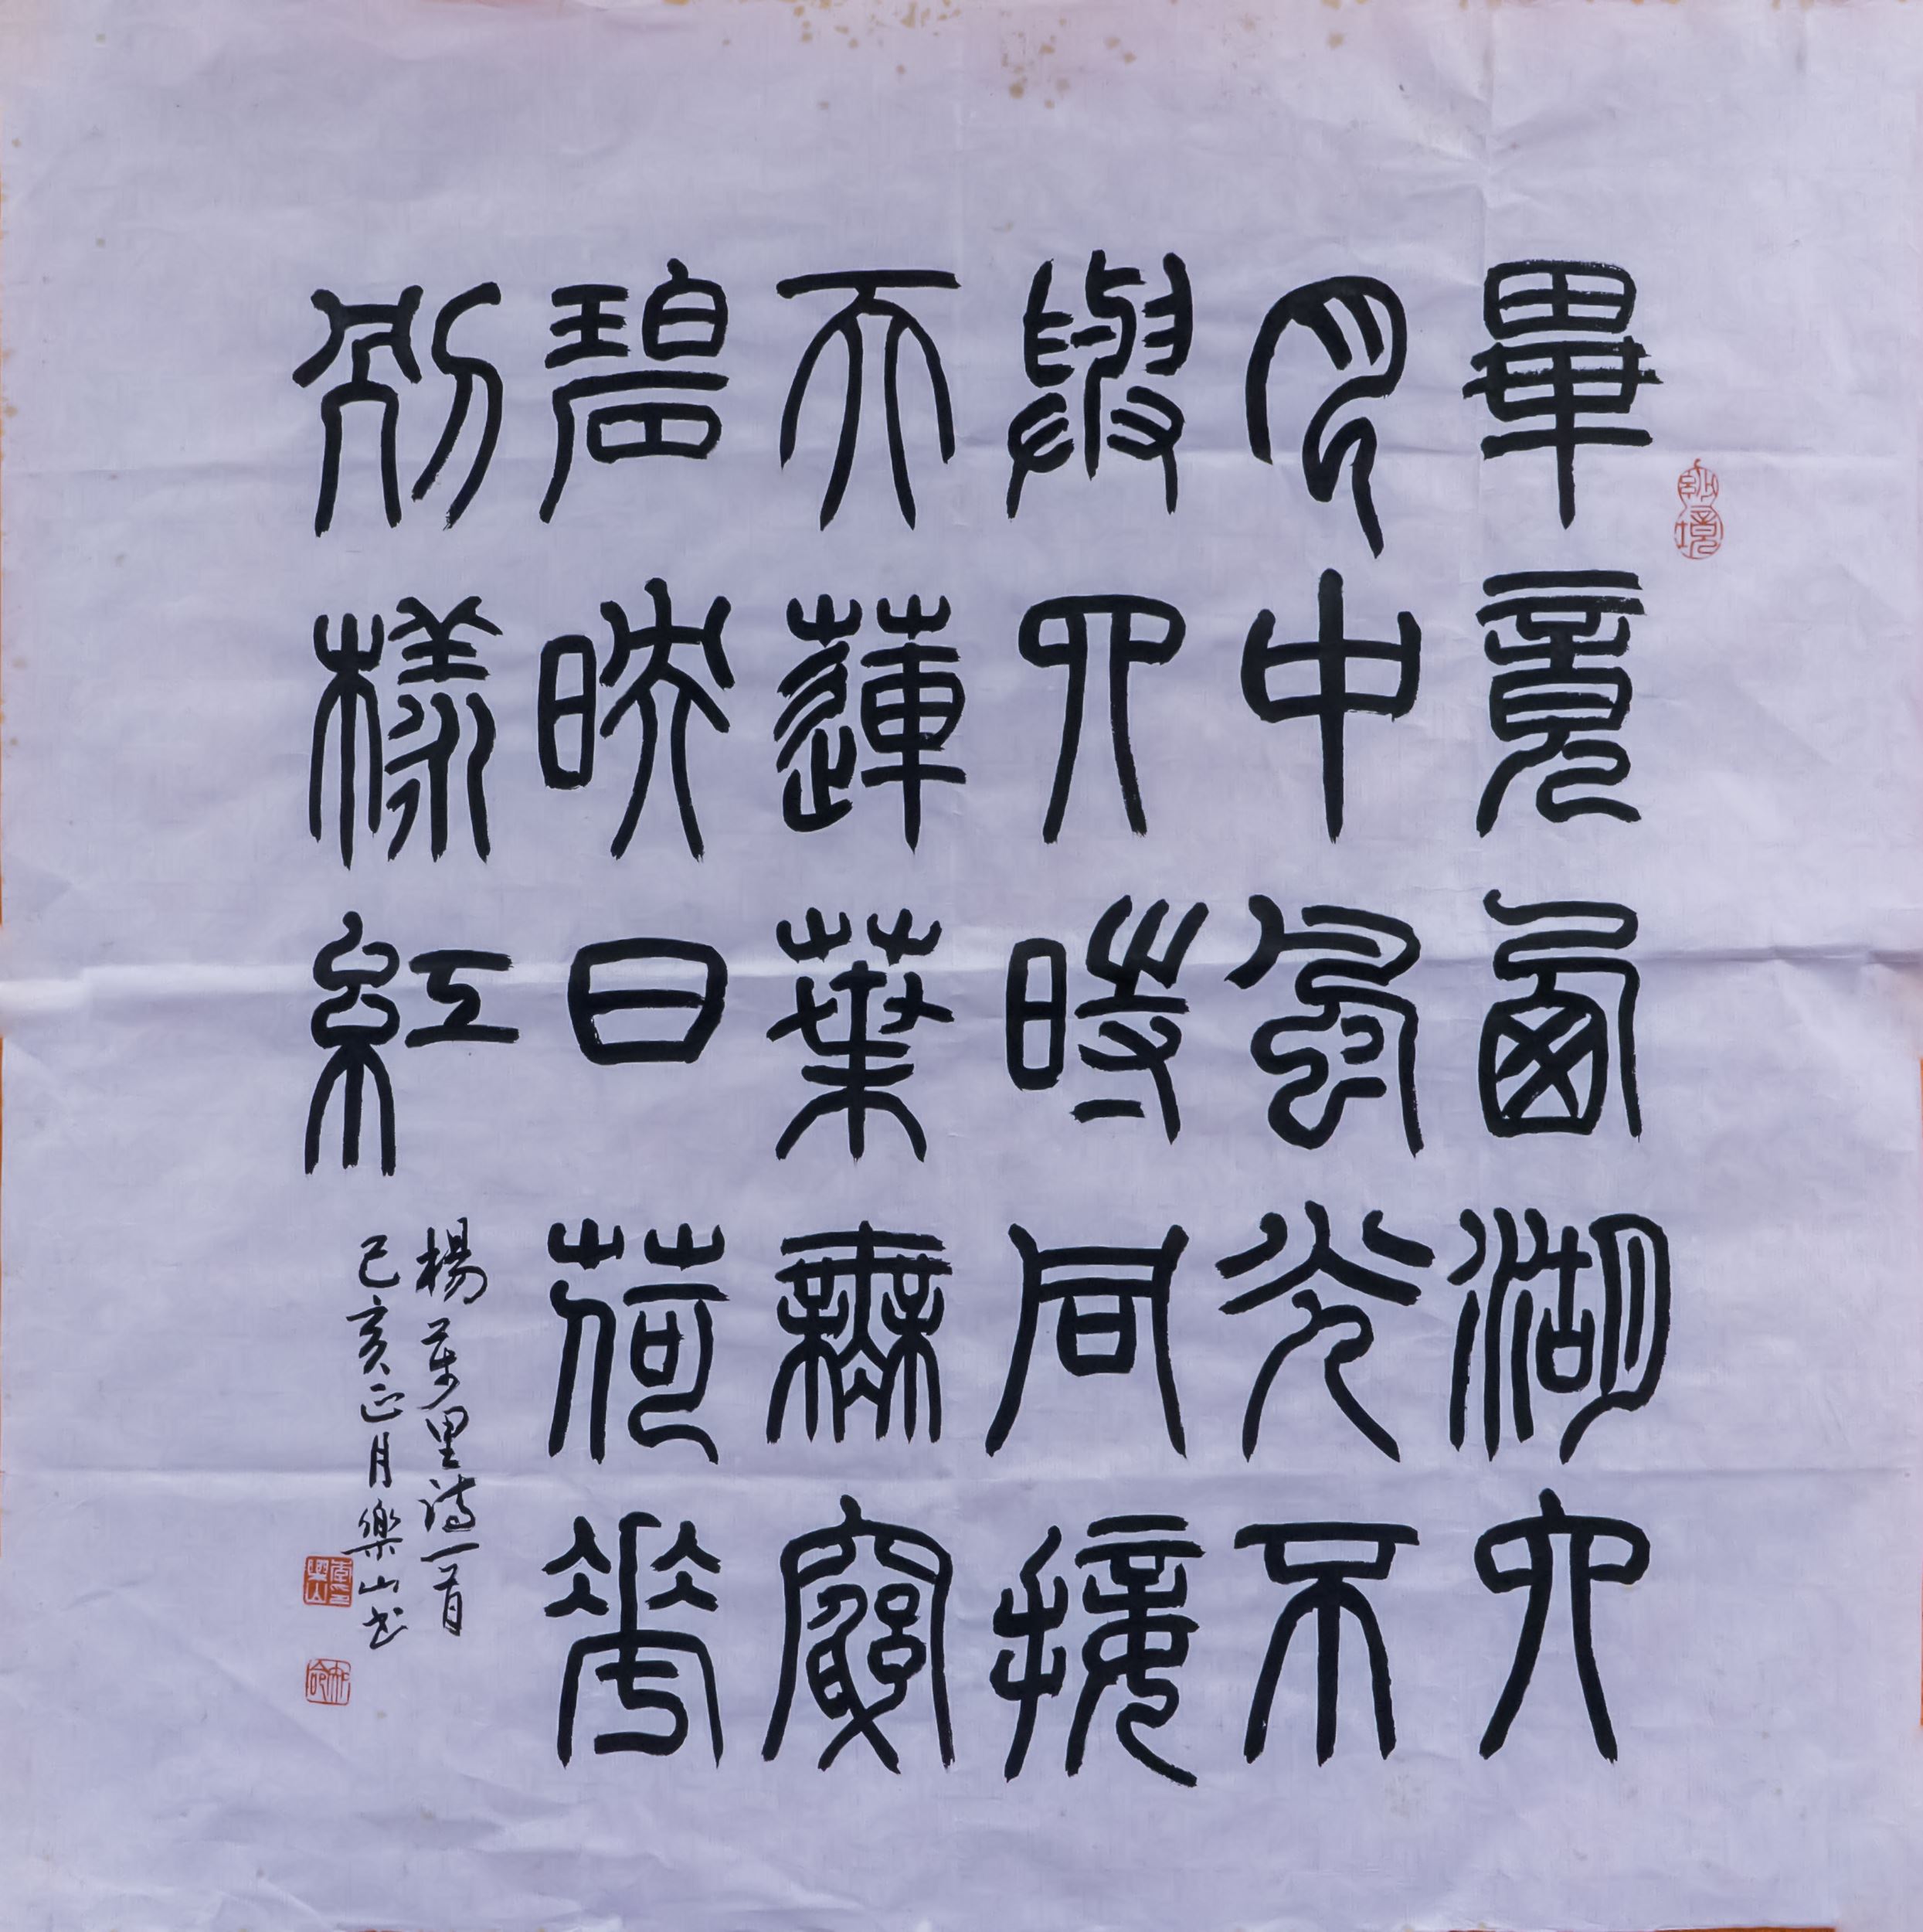 畢竟西湖六
月中風光不
與四時同接
天蓮葉無窮
碧映日荷華
別樣紅
楊萬里詩一首
己亥正月樂山書